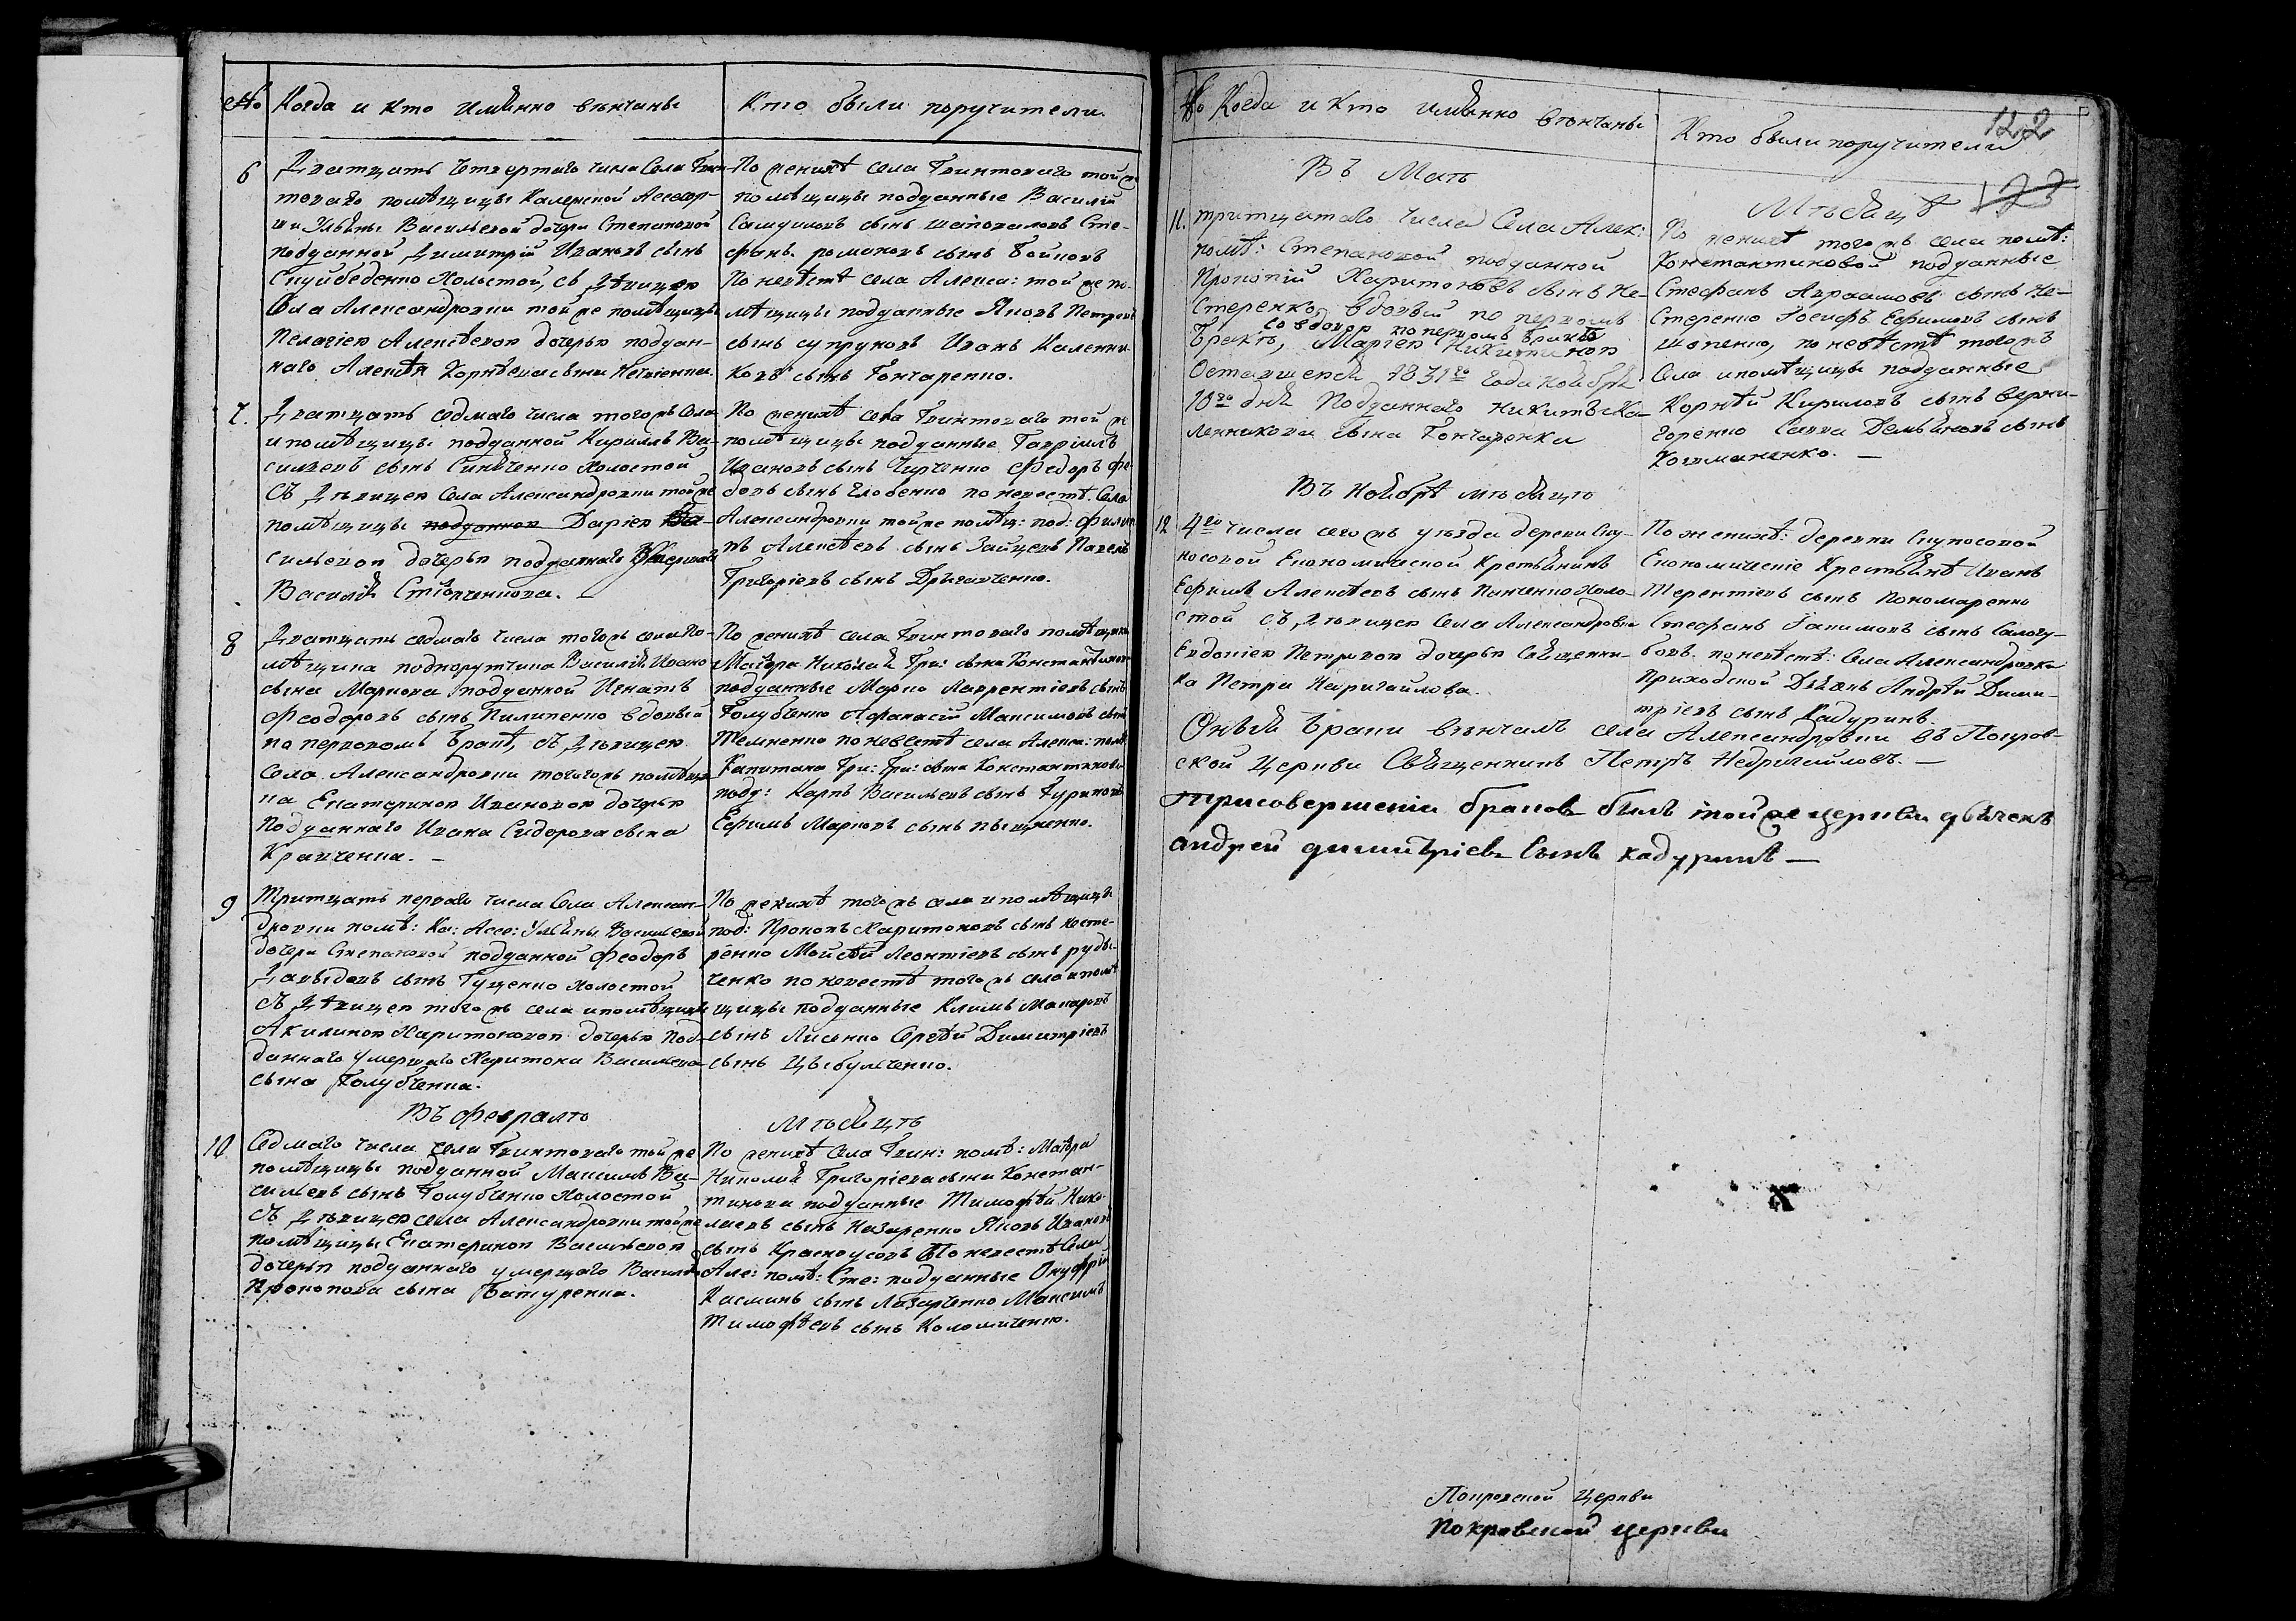 № Когда и кто имянно вѣнчаны
Кто были поручители.
6 Дватцать четвертаго числа Села Гвин-
товаго помѣщицы Калежской Ассесор-
ши Ульяны Васильевой дочери Степановой
подданной Димитрій Ивановъ сынъ
холостой, съ дѣвицею
Села Александровки той же помѣщицы
Пелагіею Алексѣевою дочерью поддан-
наго Алексѣя Корнѣева сына
По женихѣ села Гвинтоваго той же
помѣщицы подданные Василій
сынъ Шаповаловъ Сте-
фанъ романовъ сынъ Бойковъ
По невѣстѣ села Алекса: той же по-
мѣщицы подданные Яковъ Петровъ
сынъ супруновъ Иванъ Каленни-
ковъ сынъ Гончаренко.
7. Дватцать седмаго числа тогожъ Села
и помѣщицы подданной Кирилъ Ва-
сильевъ сынъ Синяченко холостой
съ дѣвицею Села Александровки той же
помѣщицы подданною Даріею Ва-
сильевою дочерью подданнаго умершаго
Василія
По женихѣ села Гвинтоваго той же
помѣщицы подданные Гавріилъ
Ивановъ сынъ Чирченко Федоръ Фе-
довъ сынъ Глобенко по невестѣ Села
Александровки той же помѣщ: под: Филип-
пъ Алексѣевъ сынъ Зайцевъ Павелъ
Григоріевъ сынъ
8 Дватцать седмаго числа тогожъ села по-
мѣщика подпорутчика Василія Ивано
сына Маркова подданной Игнатъ
Феодоровъ сынъ Пилипенко вдовый
по первомъ бракѣ, съ дѣвицею
села Александровки тогожъ помѣщи-
ка Екатериною Ивановою дочерью
Подданнаго Ивана Сидорова сына
Кравченка. —
По женихѣ села Гвинтоваго помѣщика
Маіора Николая Гри: сына Константинова
подданные Марко Лаврентіевъ сынъ
Голубченко Афанасій Максимовъ сынъ
Темненко по невестѣ села Алекса: помѣ:
Капитана Гри: Гри: сына Константинова
подд: Карпъ Васильевъ сынъ Гуриновъ
Ефимъ Марковъ сынъ
9 Тритцать перваго числа Села Алексан-
дровки помѣ: Ка: Ассе: Ульяны Васильевой
дочери Степановой подданной Феодоръ
Давыдовъ сынъ Гущенко холостой
съ дѣвицею тогожъ села и помѣщицы
Акилиною Харитоновою дочерью Под-
даннаго умершаго Харитона Васильева
сына Голубченка.
По женихѣ тогожъ села и помѣщицы
под: Прокопъ Харитоновъ сынъ Несте-
ренко Мойсѣй Леонтіевъ сынъ руды-
ченко по невестѣ тогожъ села и помѣ-
щицы подданные Климъ Макаровъ
сынъ Лисенко Сергѣй Димитріевъ
сынъ Цыбулченко.
Въ Февралѣ
Мѣсяцѣ
10 Седмаго числа села Гвинтоваго той же
помѣщицы подданной Максимъ Ва-
сильевъ сынъ Голубченко холостой
съ дѣвицею села Александровки той же
помѣщицы Екатериною Васильевою
дочерью подданнаго умершаго Василія
Прокопова сына Батуренка.
По женихѣ Села Гвин: помѣ: Маіора
Николая Григоріева сына Констан-
тинова подданные Тимофѣй Нико-
лаевъ сынъ Назаренко Яковъ Ивановъ
сынъ Красноусовъ По невестѣ Села
Але: помѣ: Сте: подданные Онуфрій
Касминъ сынъ Лазарченко Максимъ
Тимофѣевъ сынъ Коломиченко.
№ Когда и кто имянно вѣнчаны
Кто были поручители
122
123
Въ Маѣ
Мѣсяцѣ
11. тритцатаго числа Села Алек:
помѣ: Степановой подданной
Прокопій Харитоновъ сынъ Не-
стеренко, вдовый по первомъ
со вдовою по первомъ бракѣ
бракѣ, Маріею Никитиною
Оставшеюся 1831го года ноября
10го дня Подданнаго Никиты Ка-
ленникова сына Гончаренка
По женихѣ тогожъ села помѣ:
Константиновой подданные
Стефанъ Авраамовъ сынъ Не-
стеренко Іосифъ Ефимовъ сынъ
по невѣстѣ тогожъ
Села и помѣщицы подданные
Корнѣй Кириловъ сынъ Верни-
горенко Савва Демьяновъ сынъ
Кошманенко. —
Въ Ноябрѣ мѣсяцѣ
12 4го числа сегожъ уѣзда деревни Ску-
носовой Економической Крестьянинъ
Ефимъ Алексѣевъ сынъ Панченко холо-
стой съ дѣвицею Села Александровки
Евдокіею Петровою дочерью Священни-
ка Петра Недригайлова.
По женихѣ: деревни Скуносовой
Економическіе Крестьянѣ Иванъ
Терентіевъ сынъ Пономаренко
Стефанъ Іакимовъ сынъ Салогу-
бовъ. по невѣстѣ: Села Александровки
Приходской Дьяконъ Андрѣй Дими-
тріевъ сынъ Кадуринъ.
Онѣя браки вѣнчалъ села Александровки въ Покров-
ской Церкви Священникъ Петръ Недригайловъ. —
Присовершеніи браковъ былъ тойже церкви дьячекъ
андрей димитріевъ сынъ кадуринъ —
Покровской Церкви
Покровской церкви